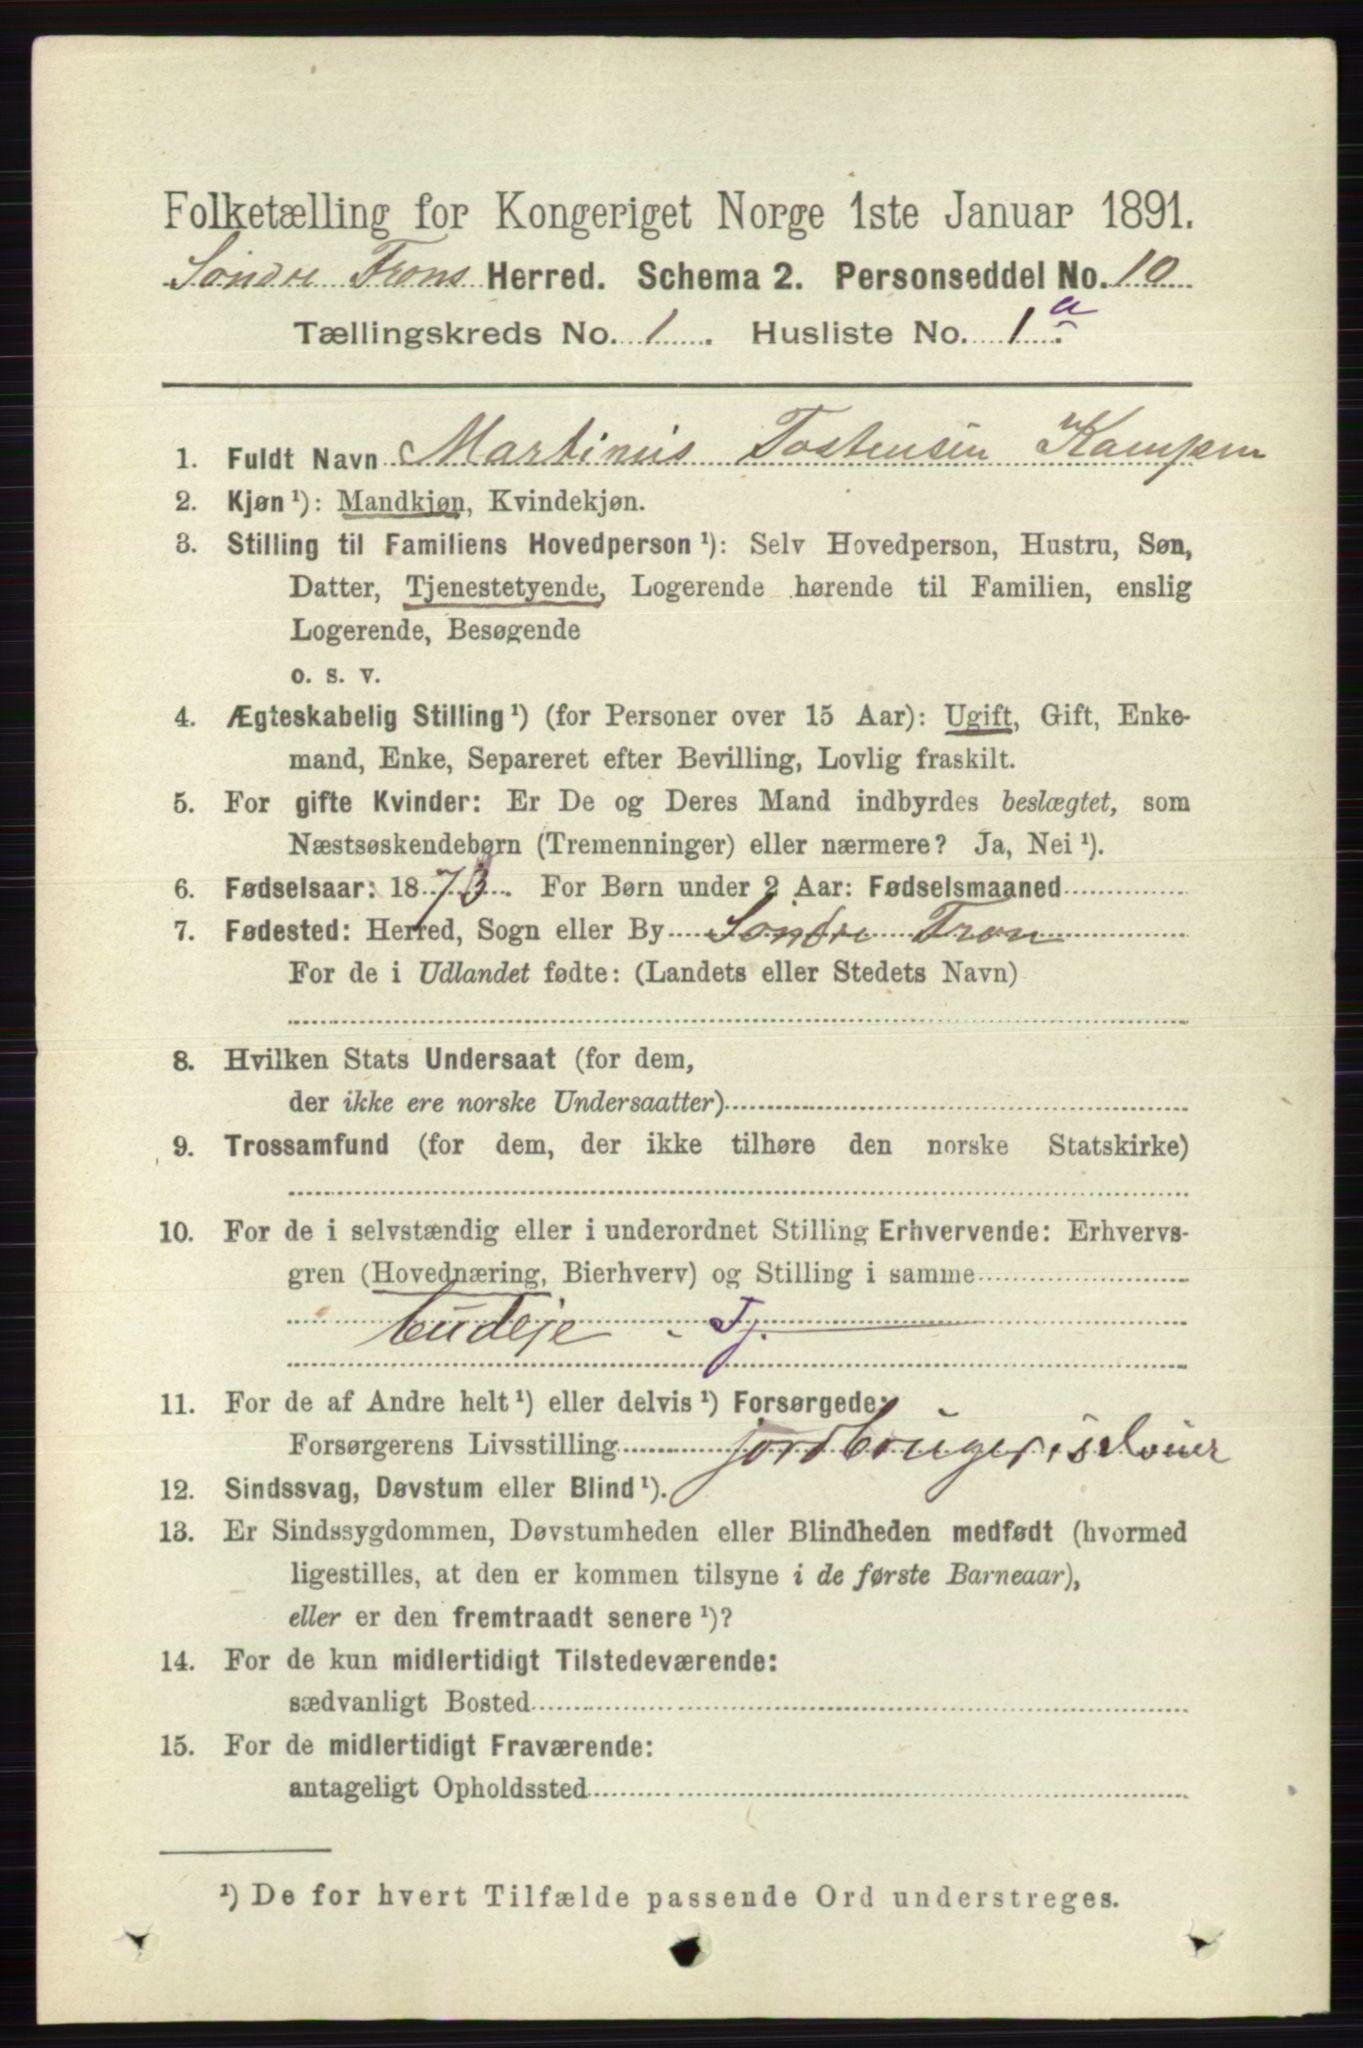 Folketælling for Kongeriget Norge 1ste Januar 1891.
Söndre Frons Herred. Schema 2. Personseddel No. 10
Tællingskreds No. 1. Husliste No. 1 a.
1. Fuldt Navn Martinus Tostensen Kampen
2. Kjøn ¹): Mandkjøn, Kvindekjøn.
3. Stilling til Familiens Hovedperson ¹): Selv Hovedperson, Hustru, Søn,
Datter, Tjenestetyende, Logerende hørende til Familien, enslig
Logerende, Besøgende
o. s. v.
4. Ægteskabelig Stilling ¹) (for Personer over 15 Aar): Ugift, Gift, Enke-
mand, Enke, Separeret efter Bevilling, Lovlig fraskilt.
5. For gifte Kvinder: Er De og Deres Mand indbyrdes beslægtet, som
Næstsøskendebørn (Tremenninger) eller nærmere? Ja, Nei ¹).
6. Fødselsaar: 1873. For Børn under 2 Aar: Fødselsmaaned
7. Fødested: Herred, Sogn eller By Söndre Fron
For de i Udlandet fødte: (Landets eller Stedets Navn)
8. Hvilken Stats Undersaat (for dem,
der ikke ere norske Undersaatter)
9. Trossamfund (for dem, der ikke tilhøre den norske Statskirke)
10. For de i selvstændig eller i underordnet Stilling Erhvervende: Erhvervs-
gren (Hovednæring, Bierhverv) og Stilling i samme
Tj.
11. For de af Andre helt ¹) eller delvis ¹) Forsørgede:
Forsørgerens Livsstilling jordbruger, selveier
12. Sindssvag, Døvstum eller Blind ¹).
13. Er Sindssygdommen, Døvstumheden eller Blindheden medfødt (hvormed
ligestilles, at den er kommen tilsyne i de første Barneaar),
eller er den fremtraadt senere ¹)?
14. For de kun midlertidigt Tilstedeværende:
sædvanligt Bosted
15. For de midlertidigt Fraværende:
antageligt Opholdssted
¹) De for hvert Tilfælde passende Ord understreges.